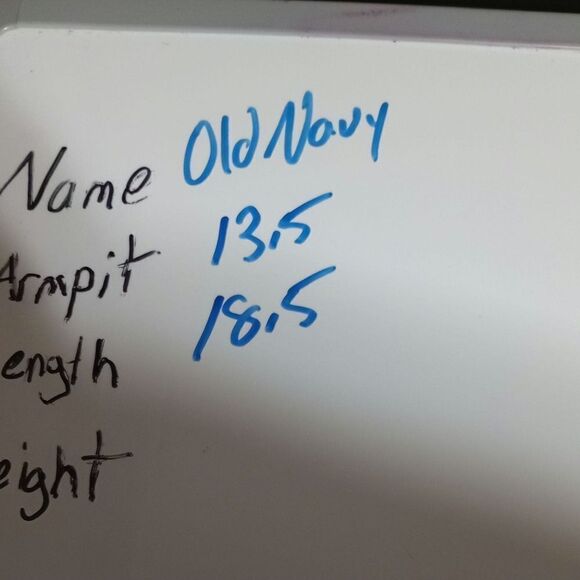 Name Old Navy
Armpit 13.5
ength 18.5
eight